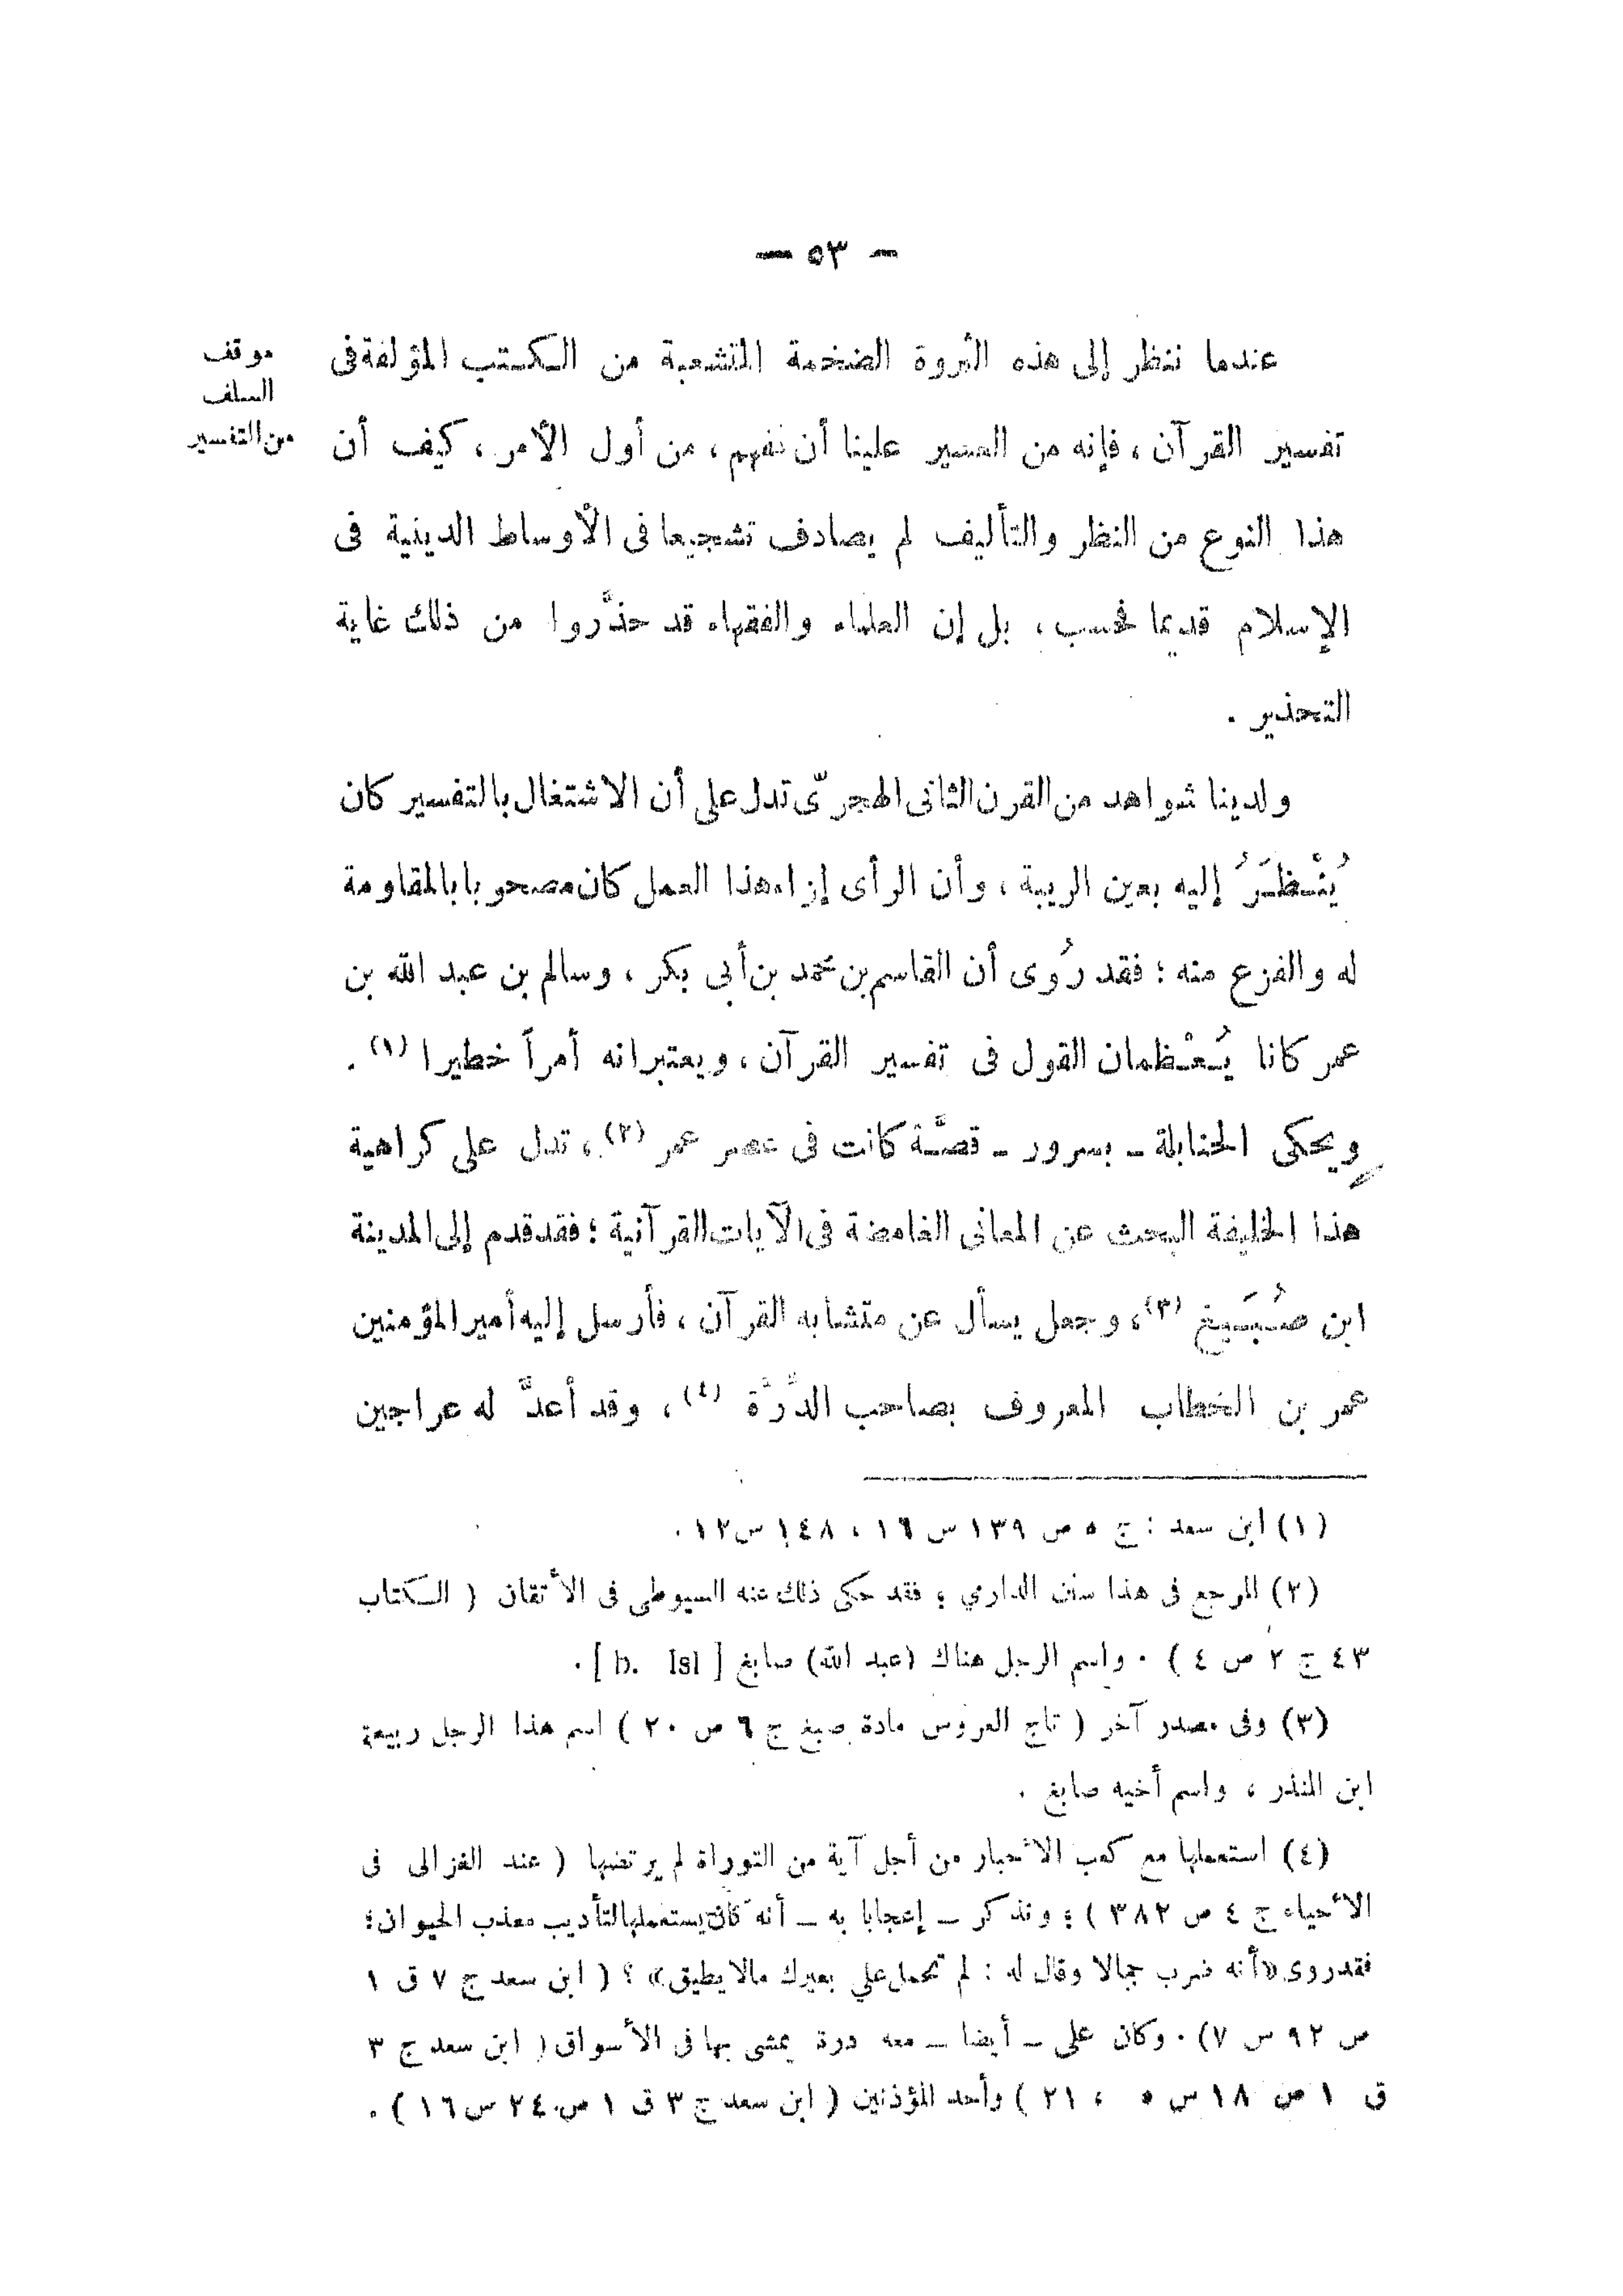 — ٥٣ —
موقف
السلف
من التفسير
عندما ننظر إلى هذه الثروة الضخمة المتشعبة من الكتب المؤلفة فى
تفسير القرآن ، فإنه من العسير علينا أن نفهم ، من أول الأمر ، كيف أن
هذا النوع من النظر والتأليف لم يصادف تشجيعا فى الأوساط الدينية فى
الإسلام قديما فحسب ، بل إن العلماء والفقهاء قد حذّروا من ذلك غاية
التحذير .
ولدينا شواهد من القرن الثانى الهجرىّ تدل على أن الاشتغال بالتفسير كان
يُنْظَرُ إليه بعين الريبة ، وأن الرأى إزاء هذا العمل كان مصحوبا بالمقاومة
له والفزع منه ؛ فقد رُوى أن القاسم بن محمد بن أبى بكر ، وسالم بن عبد الله بن
عمر كانا يُعْظمان القول فى تفسير القرآن ، ويعتبرانه أمراً خطيرا (١) .
ويحكى الحنابلة ــ بسرور ــ قصَّة كانت فى عصر عمر (٢) ، تدل على كراهية
هذا الخليفة البحث عن المعانى الغامضة فى الآيات القرآنية ؛ فقد قدم إلى المدينة
ابن صُبَيغ (٣) ، وجعل يسأل عن متشابه القرآن ، فأرسل إليه أمير المؤمنين
عمر بن الخطاب المعروف بصاحب الدِّرَّة (٤) ، وقد أعدَّ له عراجين
(١) ابن سعد : ج ٥ ص ١٣٩ س ١٦ ، ١٤٨ س ١٢ .
(٢) المرجع فى هذا سنن الدارمي ؛ فقد حكى ذلك عنه السيوطى فى الأتقان ( الكتاب
٤٣ ج ٢ ص ٤ ) . واسم الرجل هناك (عبد الله) صابغ [ b. Isl ] .
(٣) وفى مصدر آخر ( تاج العروس مادة صبغ ج ٦ ص ٢٠ ) اسم هذا الرجل ربيعة
ابن المنذر ، واسم أخيه صابغ .
(٤) استعملها مع كعب الأحبار من أجل آية من التوراة لم يرتضها ( عند الغزالى فى
الأحياء ج ٤ ص ٣٨٢ ) ؛ ونذكر ــ إعجابا به ــ أنه كان يستعملها لتأديب معذب الحيوان ؛
فقد روى «أنه ضرب جمالا وقال له : لم تحمل علي بعيرك مالا يطيق» ؟ ( ابن سعد ج ٧ ق ١
ص ٩٢ س ٧) . وكان على ــ أيضا ــ معه درة يمشى بها فى الأسواق ( ابن سعد ج ٣
ق ١ ص ١٨ س ٥ ، ٢١ ) وأحد المؤذنين ( ابن سعد ج ٣ ق ١ ص ٢٤ س ١٦ ) .